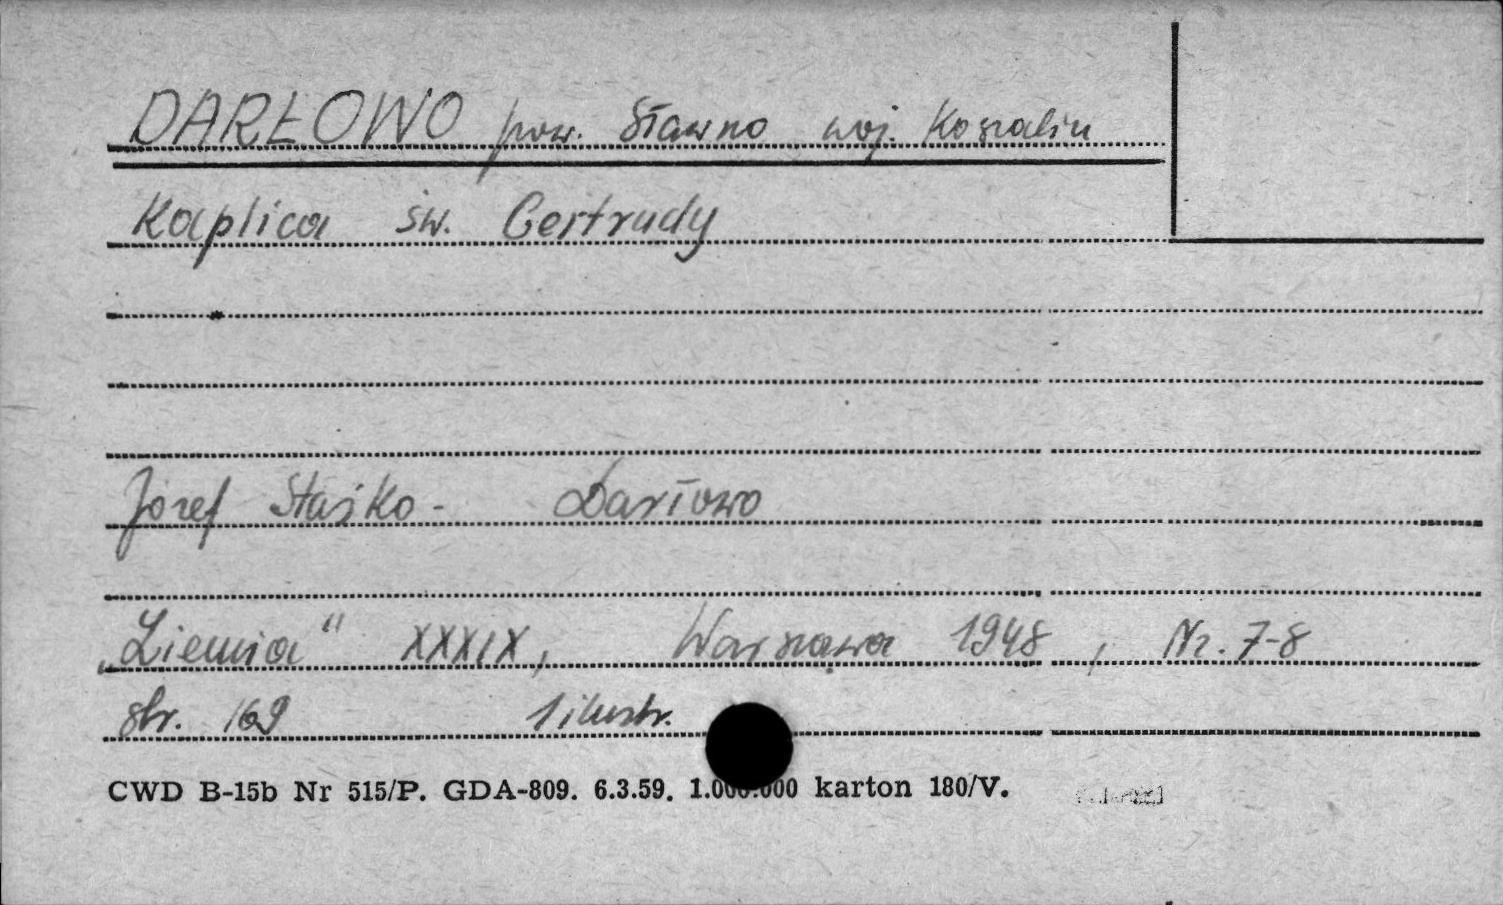 DARŁOWO pow. Sławno woj. Koszalin
Kaplica św. Gertrudy
Józef Staśko - Darłowo
„Ziemia" XXXIX, Warszawa 1948, Nr. 7-8
str. 169 1 ilustr.
CWD B-15b Nr 515/P. GDA-809. 6.3.59. 1.000.000 karton 180/V.